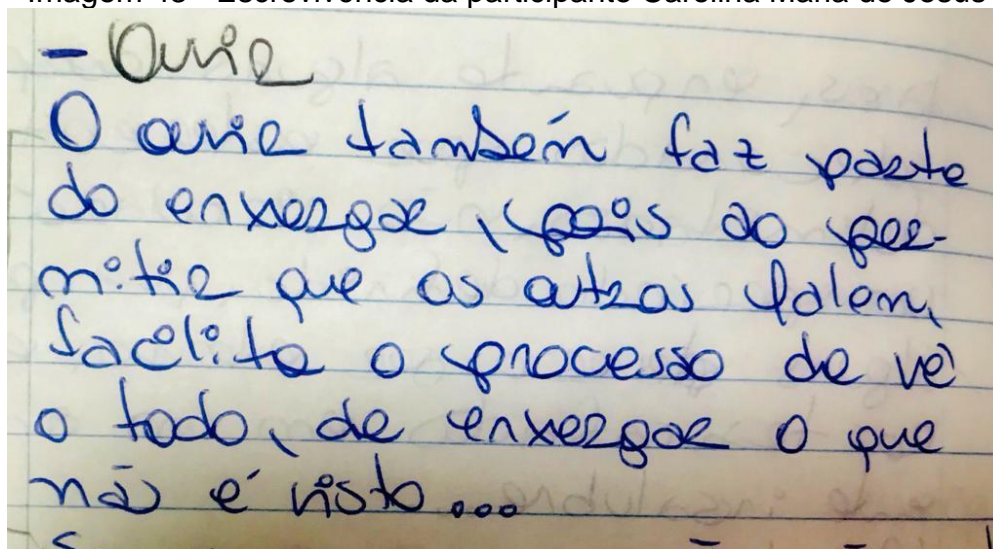 Imagem 48 - Escrevivência da participante Carolina Maria de Jesus
- Ouvir
O ouvir também faz parte
do enxergar, pois ao per-
mitir que os outros falem,
facilita o processo de vê
o todo, de enxergar o que
não é visto...